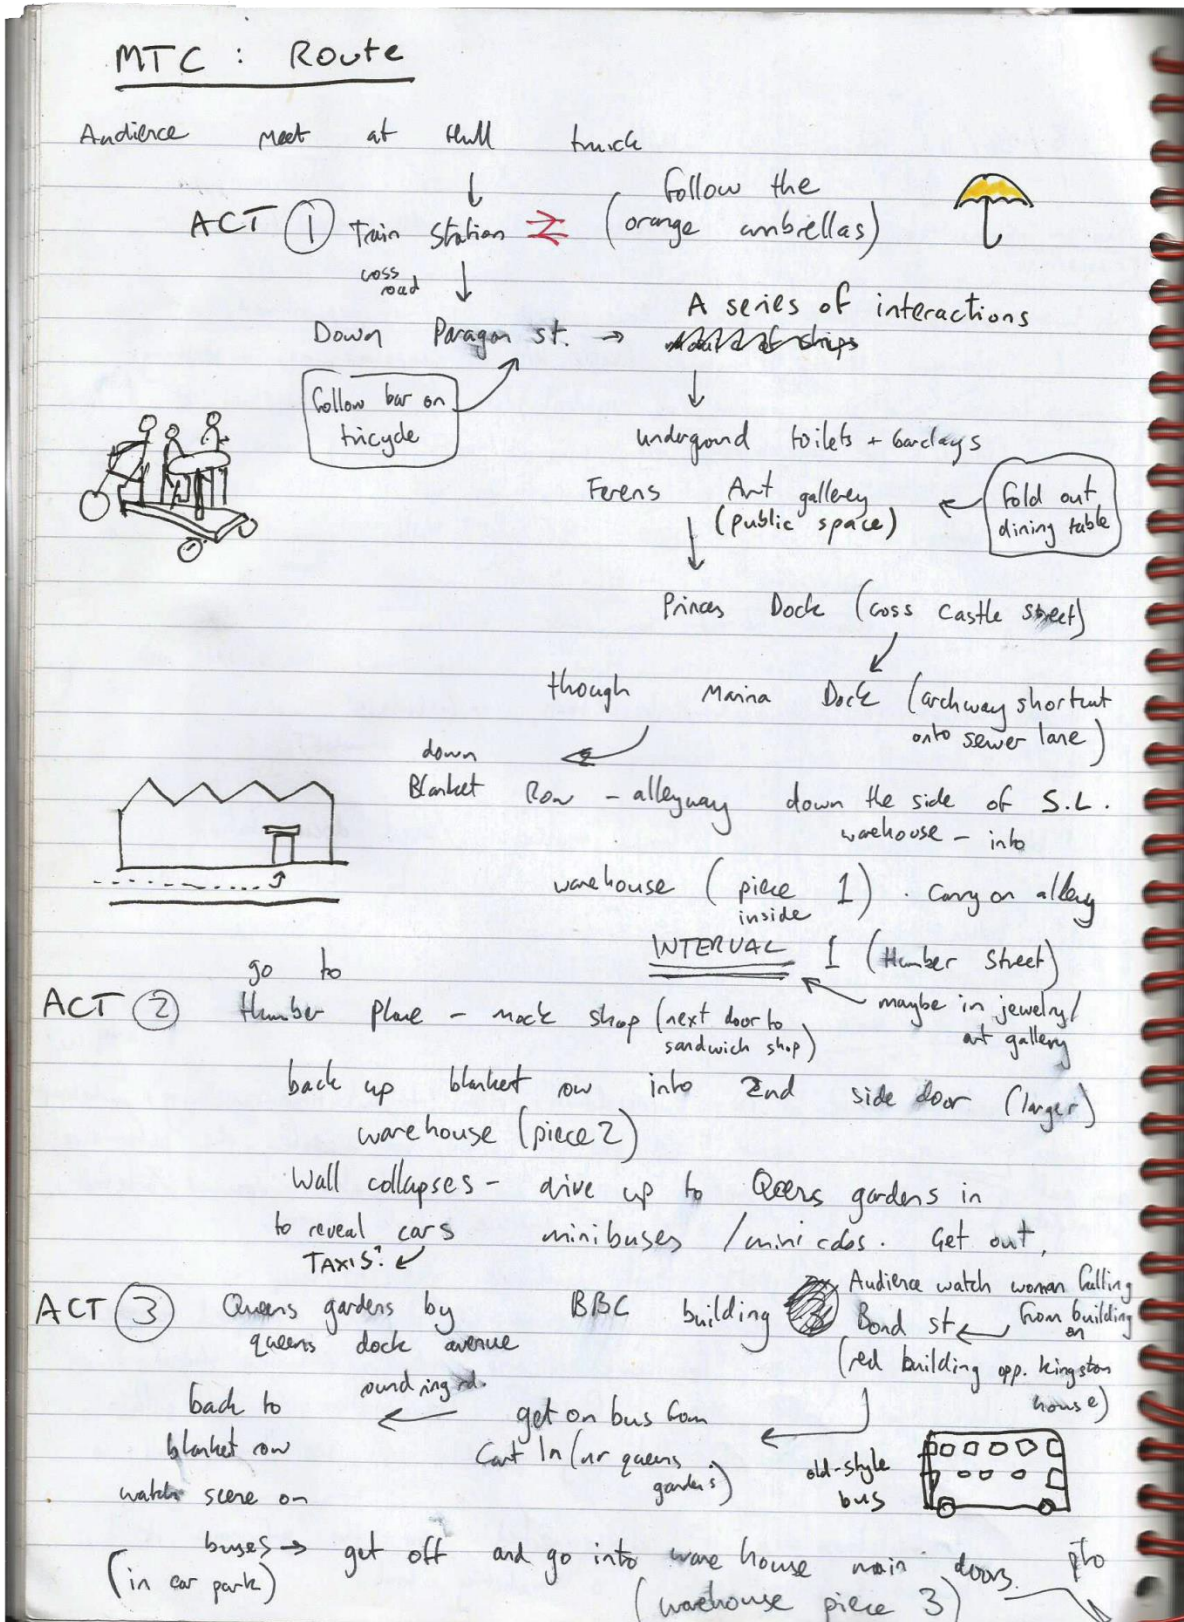 MTC : Route
Audience meet at Hull truck
ACT 1 Train Station (follow the orange umbrellas)
cross road
Down Paragon st. → A series of interactions
follow bar on tricycle
undergound toilets + barclays
Ferens Art gallerey (public space)
fold out dining table
Princes Dock (cross Castle Street)
though Marina Dock (archway shortcut onto sewer lane)
down Blanket Row - alleyway down the side of S.L. warehouse - into
warehouse (piece 1 inside) . carry on alley
INTERVAL 1 (Humber Street)
maybe in jewelry/ art gallery
go to
ACT 2 Humber Place - mock shop (next door to sandwich shop)
back up blanket row into 2nd side door (larger)
warehouse (piece 2)
Wall collapses - drive up to Qeens gardens in
to reveal cars minibuses / mini cabs. Get out,
TAXIS?
ACT 3 Queens gardens by BBC building
queens dock avenue
Audience watch woman falling from building on
Bond st
(red building opp. kingston house)
round ring rd.
back to ← get on bus from
blanket row
watch scene on
buses → get off and go into warehouse main doors. pto
(in car park)
(warehouse piece 3)
old-style bus
(nr queens gardens)